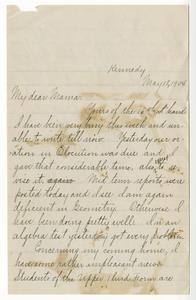 Kennedy
May 18, 1904
My dear Mama:
Yours of the inst hand
I have been very busy this week and un-
able to write till now. Yesterday our ov-
ation in Elocution was due and I
gave that considerable time, also to
vise it again. Mid term reports were
posted today and I see I am again
deficient in Geometry. Otherwise I
have been doing pretty well. In an
algebra test yesterday got every problem
Concerning my coming home, I
have some rather unpleasant news.
Students of the upper third form are